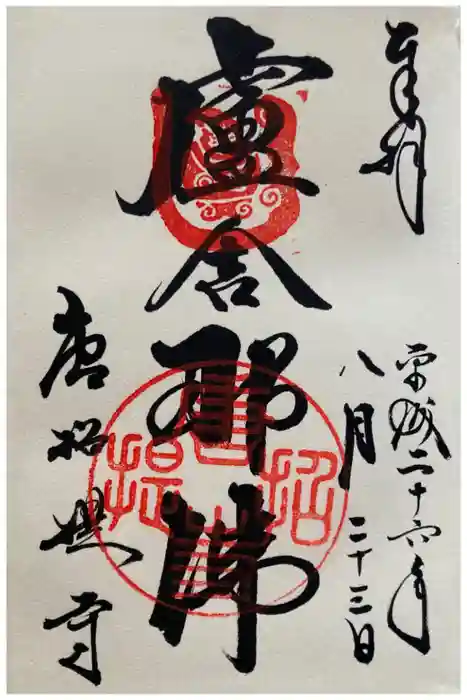 奉拝
平成二十六年
八月二十三日
盧舎那佛
唐招提寺
唐招提寺